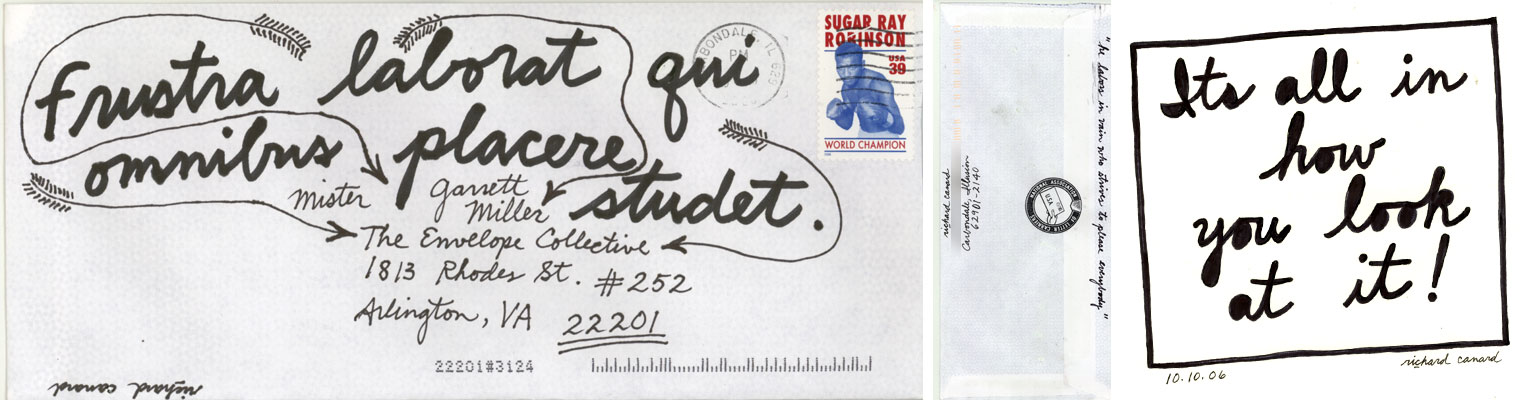 frustra laborat qui
omnibus placere
studet.
SUGAR RAY
ROBINSON
USA
39
WORLD CHAMPION
BONDALE, IL 629
PM
mister garrett
Miller
The Envelope Collective
1813 Rhodes St. #252
Arlington, VA 22201
22201#3124
richard canard
richard canard
Carbondale, Illusion
62901-2140
NATIONAL ASSOCIATION
"he labors in vain who strives to please everybody"
Its all in
how
you look
at it!
richard canard
10.10.06